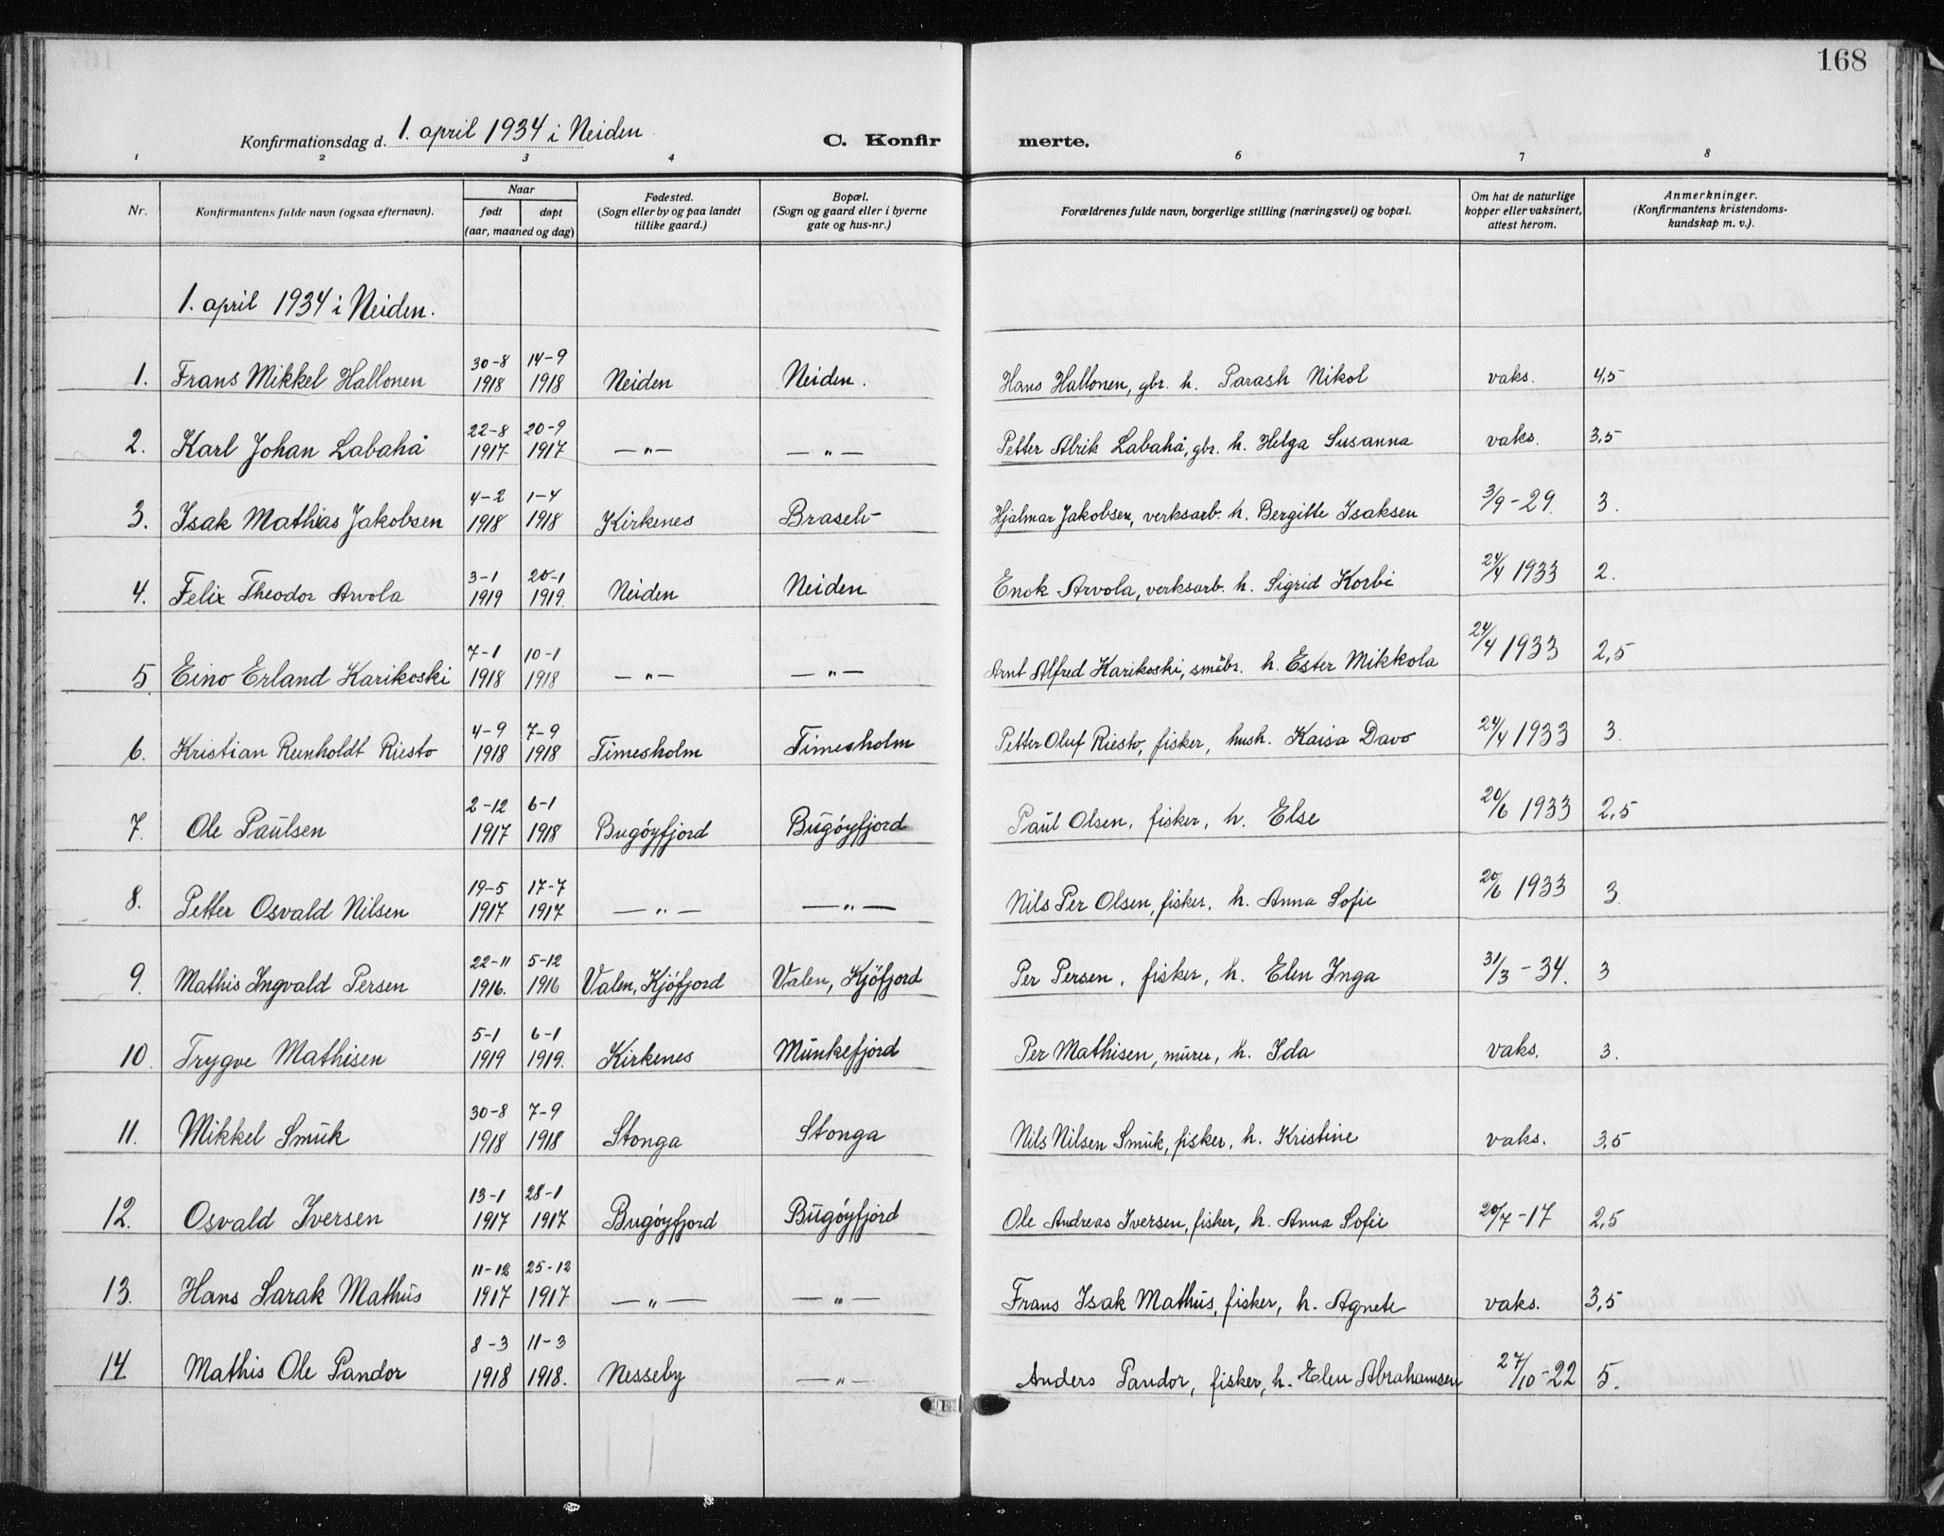 168
Konfirmationsdag d. 1. april 1934 i Neiden C. Konfirmerte.
1 2 3 4 6 7 8
Nr. Konfirmantens fulde navn (ogsaa efternavn). Naar født døpt (aar, maaned og dag) Fødested. (Sogn eller by og paa landet tillike gaard.) Bopæl. (Sogn og gaard eller i byerne gate og hus-nr.) Forældrenes fulde navn, borgerlige stilling (næringsvei) og bopæl. Om hat de naturlige kopper eller vaksinert, attest herom. Anmerkninger. (Konfirmantens kristendomskundskap m. v.).
1. april 1934 i Neiden.
1. Frans Mikkel Hallonen 30-8 1918 14-9 1918 Neiden Neiden. Hans Hallonen, gbr. h. Parash Nikol vaks. 4,5
2. Karl Johan Labahå 22-8 1917 20-9 1917 —"— —"— Petter Alrik Labahå, gbr. h. Helga Susanna vaks. 3,5
3. Isak Mathias Jakobsen 4-2 1918 1-4 1918 Kirkenes Hjalmar Jakobsen, verksarb. h. Bergitte Isaksen 3/9-29. 3.
4. Felix Theodor Arvola 3-1 1919 20-1 1919. Neiden Neiden Enok Arvola, verksarb. h. Sigrid Korbi 24/4 1933 2.
5. Eino Erland Karikoski 7-1 1918 10-1 1918 —"— —"— Arnt Alfred Karikoski, småbr. h. Ester Mikkola 24/4 1933 2,5
6. Kristian Reinholdt Riesto 4-9 1918 7-9 1918 Timesholm Timesholm Petter Oluf Riesto, fisker, hush. Kaisa Davo 24/4 1933 3.
7. Ole Paulsen 2-12 1917 6-1 1918 Bugøyfjord Bugøyfjord Paul Olsen, fisker, h. Else 20/6 1933 2,5
8. Petter Osvald Nilsen 19-5 1917 17-7 1917 —"— —"— Nils Per Olsen, fisker, h. Anna Sofie 20/6 1933 3.
9. Mathis Ingvald Persen 22-11 1916. 5-12 1916 Valen, Kjøfjord Valen, Kjøfjord Per Persen, fisker, h. Elen Inga 31/3-34. 3
10. Trygve Mathisen 5-1 1919 6-1 1919. Kirkenes Munkefjord Per Mathisen, murer, h. Ida vaks. 3.
11. Mikkel Smuk 30-8 1918 7-9 1918 Stonga Stonga Nils Nilsen Smuk, fisker, h. Kristine vaks. 3,5
12. Osvald Iversen 13-1 1917 28-1 1917 Bugøyfjord Bugøyfjord Ole Andreas Iversen, fisker, h. Anna Sofie 20/7-17 2,5
13. Hans Sarak Mathus 11-12 1917 25-12 1917 —"— —"— Frans Isak Mathus, fisker, h. Agnete vaks. 3,5
14 Mathis Ole Pandor 8-3 1918 11-3 1918. Nesseby —"— Anders Pandor, fisker, h. Elen Abrahamsen 27/10-22 5.